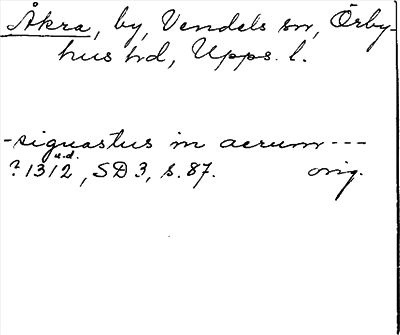 Åkra, by, Vendels sn, Örby-
hus hd, Upps. l.
-siguastus in acrum ---
u.d.
? 1312, SD 3, s. 87. orig.